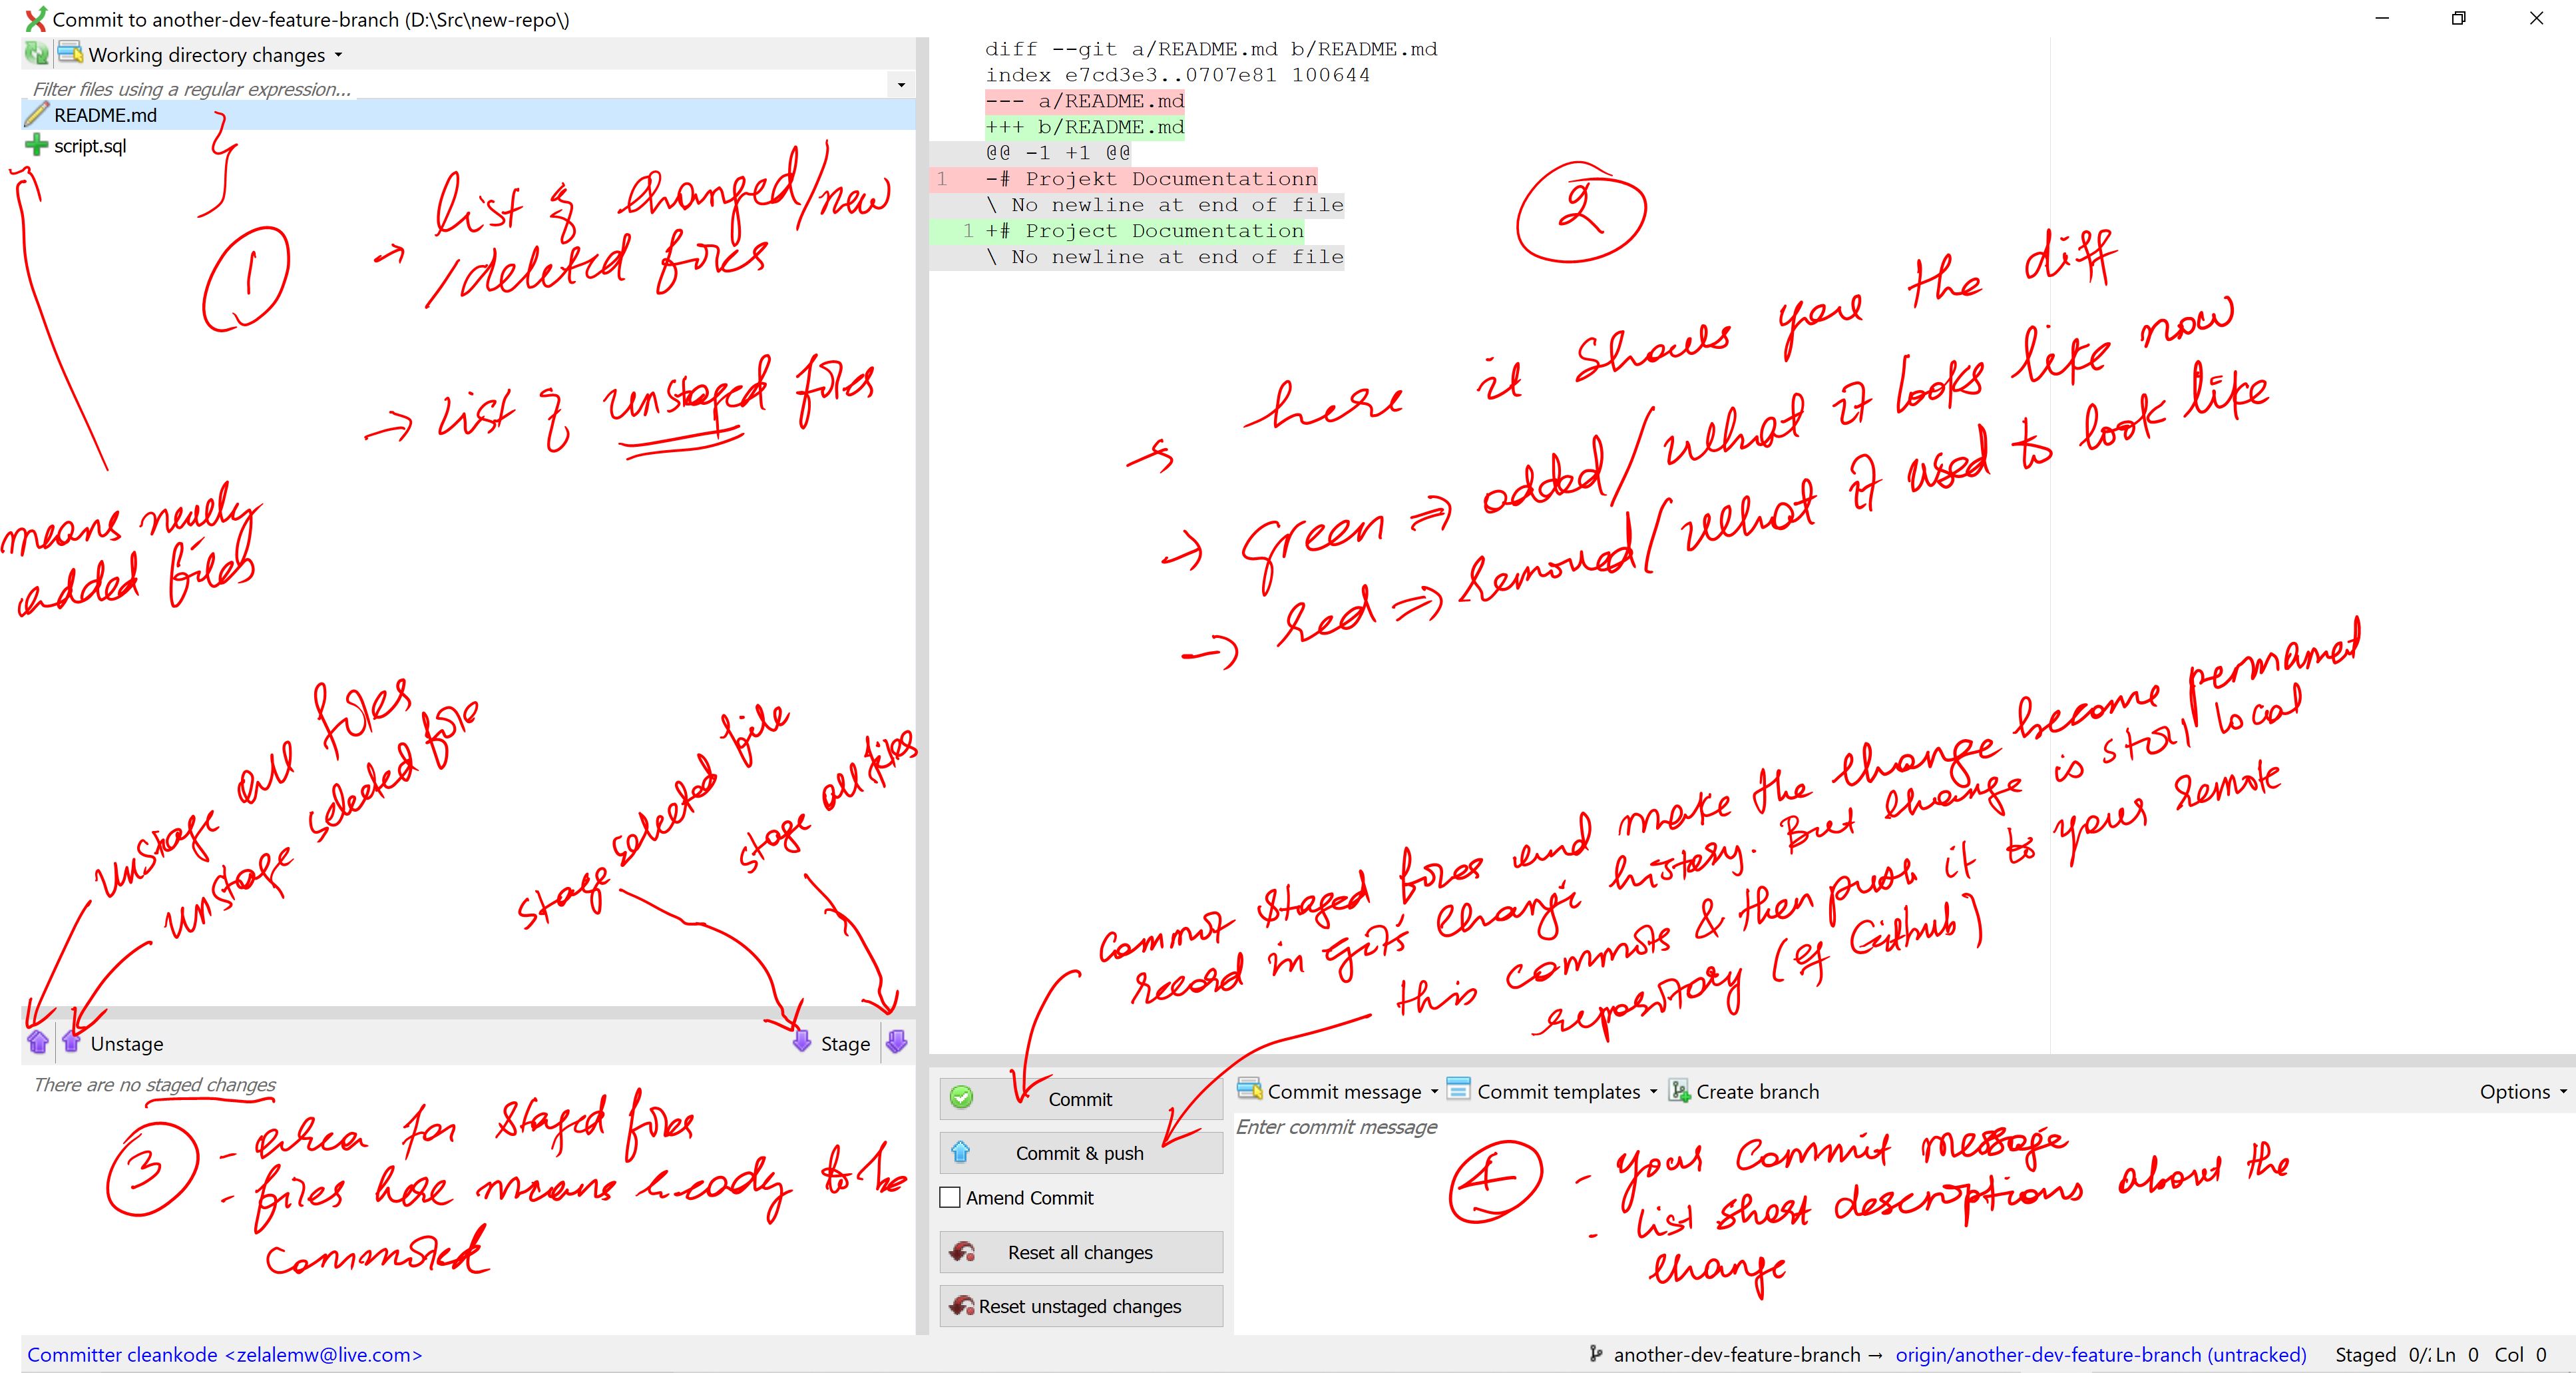 Commit to another-dev-feature-branch (D:\Src\new-repo\)
Working directory changes
Filter files using a regular expression...
README.md
script.sql
1
→ list of changed/new
/deleted files
→ List of unstaged files
means newly
added files
unstage all files
unstage selected file
stage selected file
stage all files
Unstage
Stage
There are no staged changes
3
- area for staged files
- files here means ready to be
committed
diff --git a/README.md b/README.md
index e7cd3e3..0707e81 100644
--- a/README.md
+++ b/README.md
@@ -1 +1 @@
1 -# Projekt Documentationn
\ No newline at end of file
1 +# Project Documentation
\ No newline at end of file
2
→ here it shows you the diff
→ green ⇒ added/what it looks like now
→ red ⇒ removed/what it used to look like
Commit staged files and make the change become permamet
record in git's change history. But change is still local
this commits & then push it to your remote
repository (eg Github)
Commit
Commit & push
Amend Commit
Reset all changes
Reset unstaged changes
Commit message
Commit templates
Create branch
Options
Enter commit message
4
- your commit message
- list short descriptions about the
change
Committer cleankode <zelalemw@live.com>
another-dev-feature-branch → origin/another-dev-feature-branch (untracked)
Staged 0/
Ln 0 Col 0